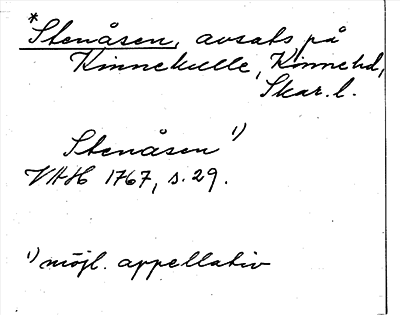 *Stenåsen, avsats på
Kinnekulle, Kinnehd,
Skar. l.
Stenåsen 1)
VHH 1767, s. 29.
1) möjl. appellativ